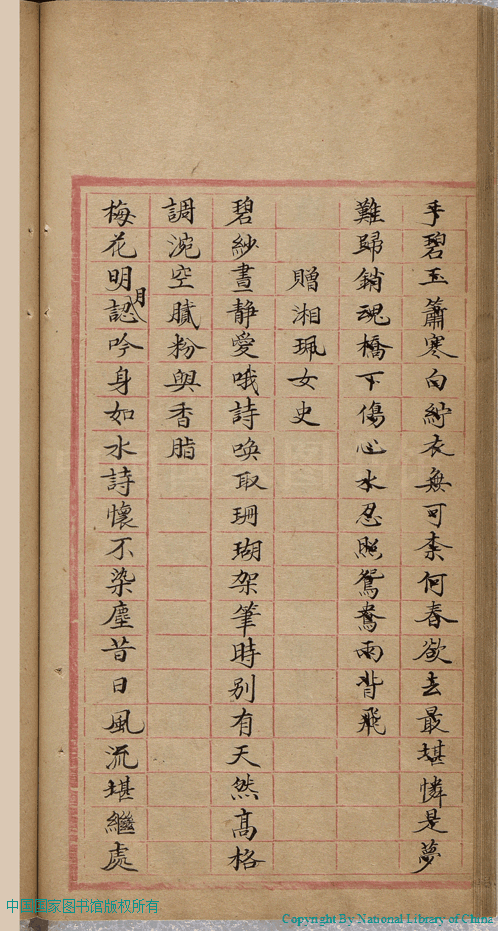 手碧玉簫寒白紵衣無可柰何春欲去最堪憐是夢
難歸銷魂橋下傷心水忍照鴛鴦兩背飛
贈湘珮女史
碧紗晝静愛哦詩唤取珊瑚架筆時别有天然髙格
調涴空膩粉與香脂
梅花明月認吟身如水詩懷不染塵昔日風流堪繼處
中国国家图书馆版权所有
Copyright By National Library of China